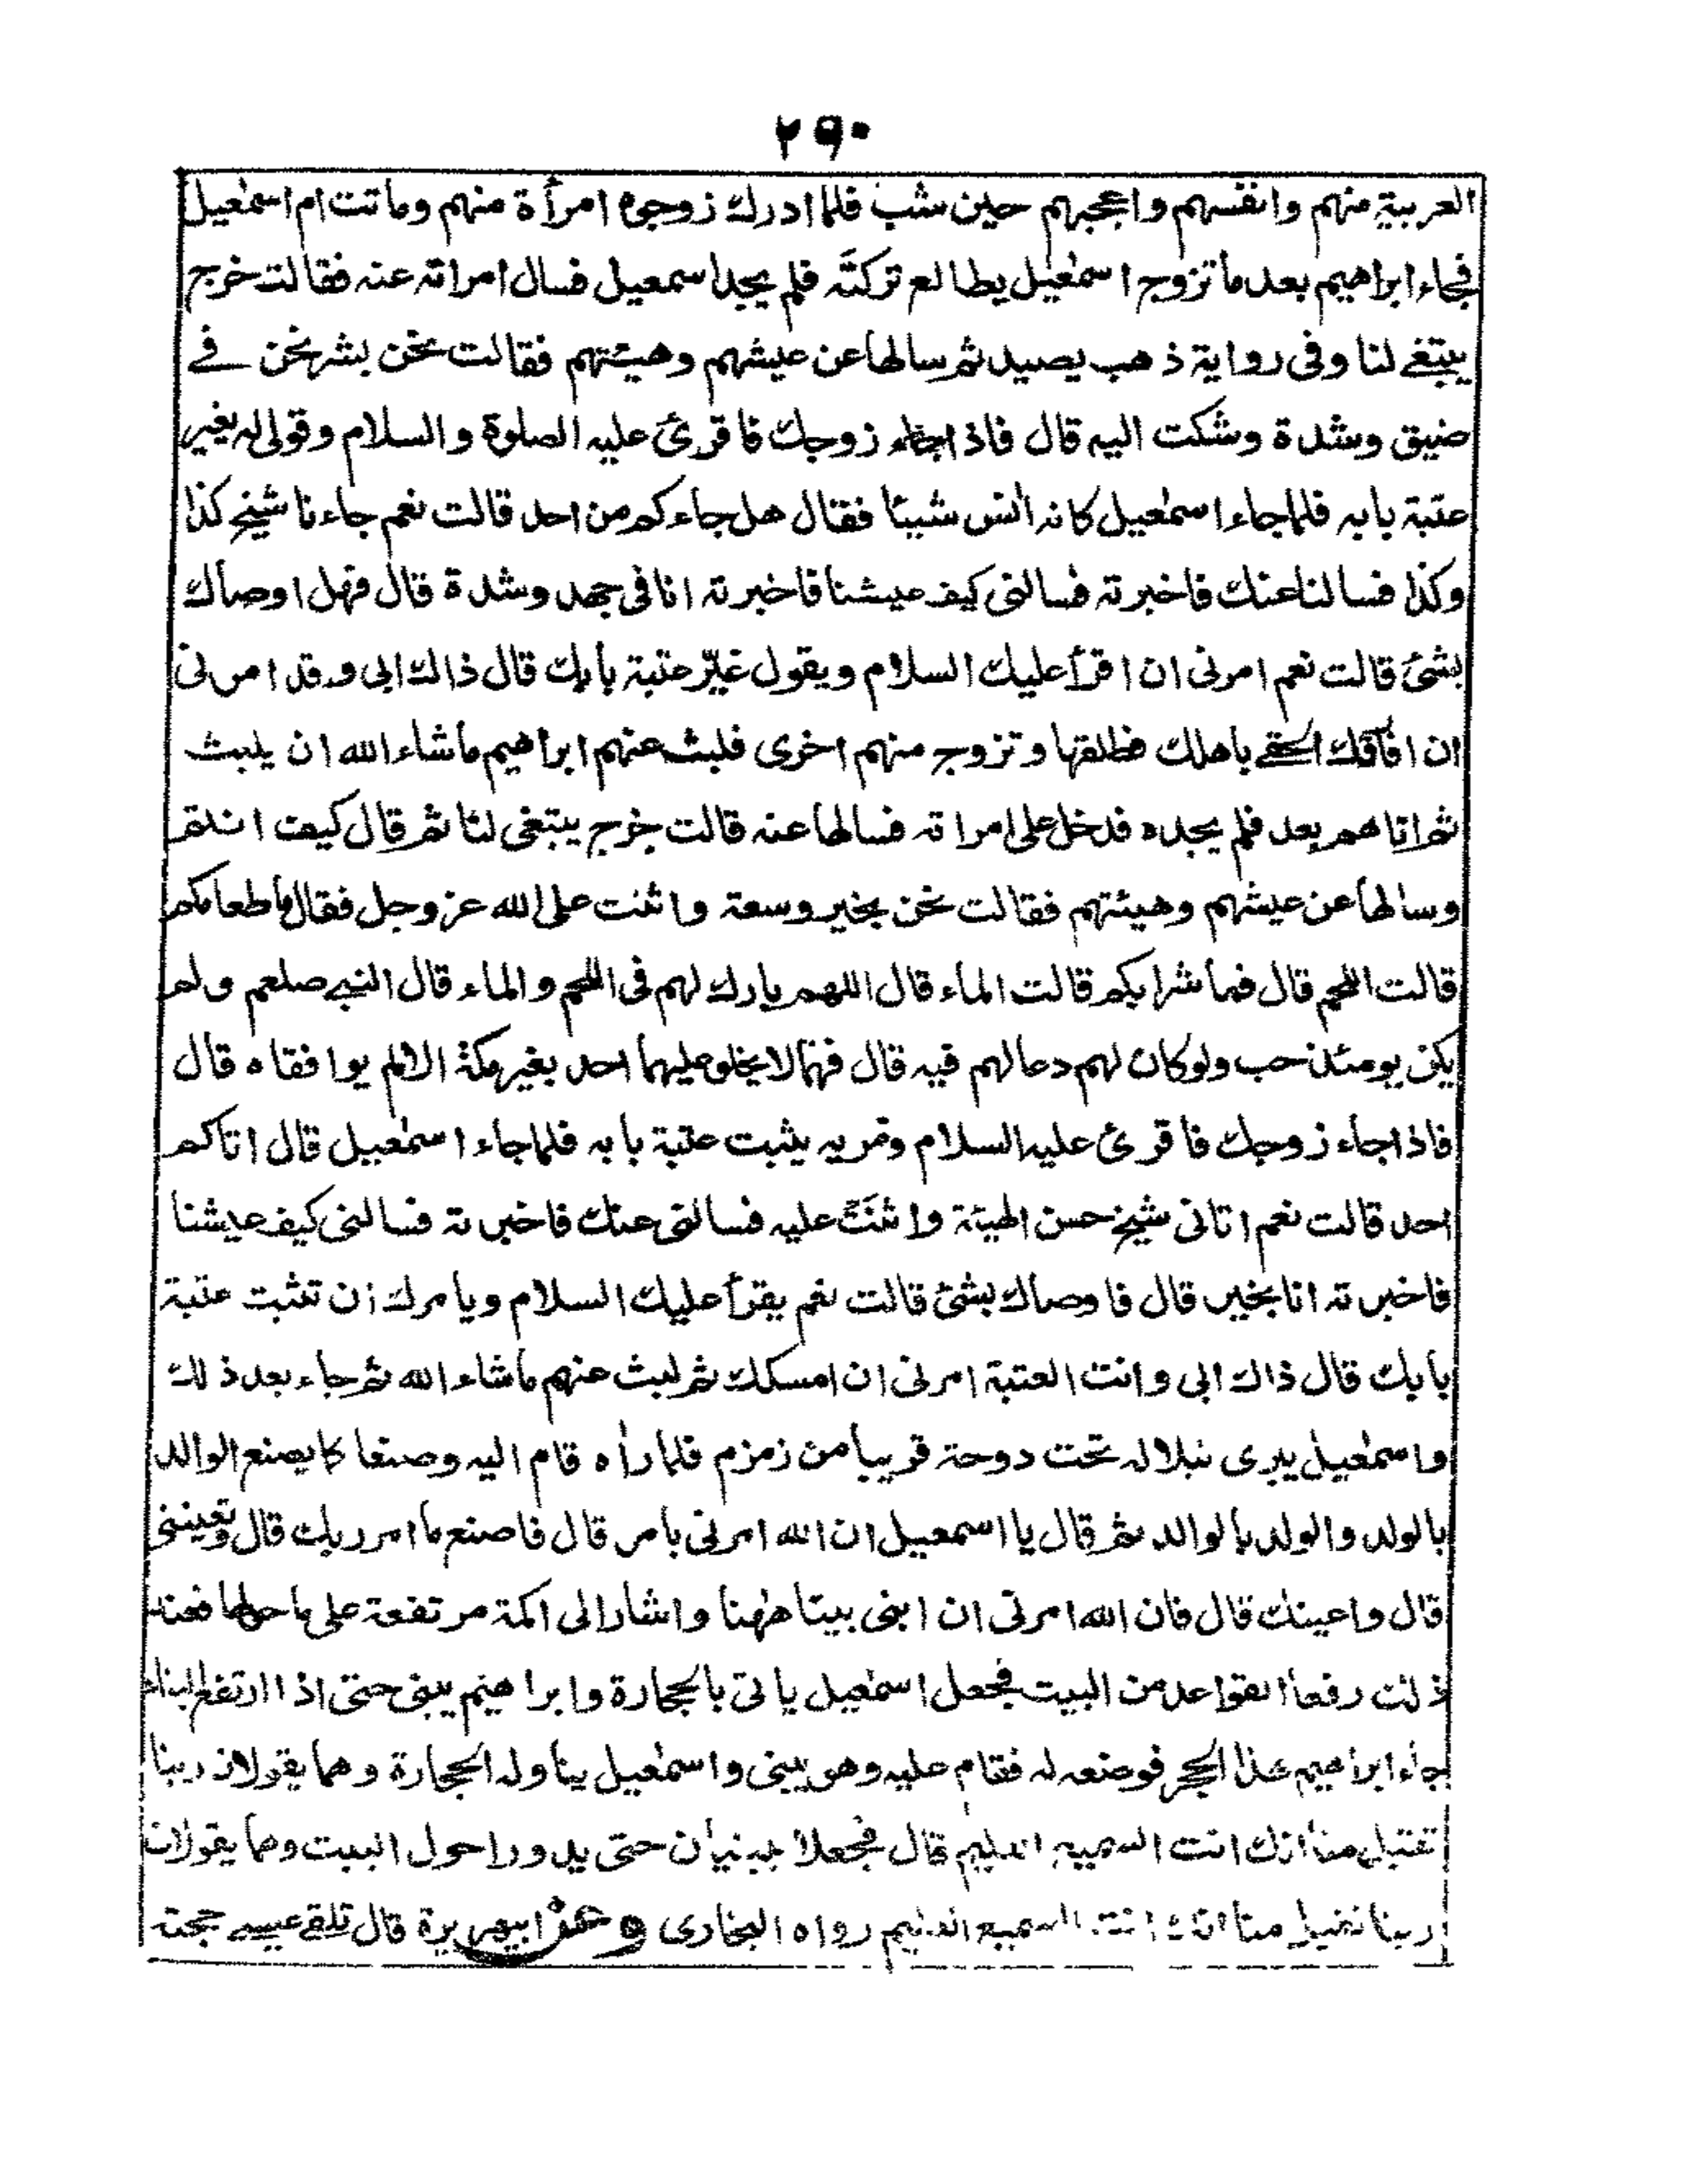 ٢٩٠
العربية منهم وانفسهم واعجبهم حين شب فلما ادرك زوجوه امرأة منهم وماتت ام اسمٰعيل
فجاء ابراهيم بعد ما تزوج اسمٰعيل يطالع تركتَه فلم يجد اسمعيل فسال امراته عنه فقالت خرج
يبتغے لنا وفى رواية ذهب يصيد ثم سالها عن عيشهم وهيئتهم فقالت نحن بشر نحن فے
ضيق وشدة وشكت اليه قال فاذا جاء زوجك فاقرئ عليه الصلوة والسلام وقولى له يغير
عتبة بابه فلما جاء اسمٰعيل كانه اٰنس شيئا فقال هل جاءكم من احد قالت نعم جاءنا شيخ كذا
وكذا فسالنا عنك فاخبرته فسالنى كيف عيشنا فاخبرته انا فى جهد وشدة قال فهل اوصاك
بشئ قالت نعم امرنى ان اقرأ عليك السلام ويقول غيّر عتبة بابك قال ذالك ابى وقد امرنى
ان افارقك الحقے باهلك فطلقها وتزوج منهم اخرى فلبث عنهم ابراهيم ماشاء الله ان يلبث
ثم اتاهم بعد فلم يجده فدخل على امراته فسالها عنه قالت خرج يبتغى لنا ثم قال كيف انتم
وسالها عن عيشهم وهيئتهم فقالت نحن بخير وسعة واثنت على الله عز وجل فقال ما طعامكم
قالت اللحم قال فما شرابكم قالت الماء قال اللهم بارك لهم فى اللحم والماء قال النبے صلعم ولم
يكن يومئذ حب ولوكان لهم دعا لهم فيه قال فهما لا يخلو عليهما احد بغير مكة الا لم يوافقاه قال
فاذا جاء زوجك فاقرئ عليه السلام ومريه يثبت عتبة بابه فلما جاء اسمٰعيل قال اتاكم
احد قالت نعم اتانى شيخ حسن الهيئة واثنَتْ عليه فسالنى عنك فاخبرته فسالنى كيف عيشنا
فاخبرته انا بخير قال فاوصاك بشئ قالت نعم يقرأ عليك السلام ويامرك ان تثبت عتبة
بابك قال ذاك ابى وانت العتبة امرنى ان امسكك ثم لبث عنهم ماشاء الله ثم جاء بعد ذلك
واسمٰعيل يبرى نبلا له تحت دوحة قريبا من زمزم فلما راٰه قام اليه وصنعا كما يصنع الوالد
بالولد والولد بالوالد ثم قال يا اسمعيل ان الله امرنى بامر قال فاصنع ما امر ربك قال وتعيننى
قال واعينك قال فان الله امرنى ان ابنى بيتا هٰهنا واشار الى اكمة مرتفعة على ما حولها فعند
ذلك رفعا القواعد من البيت فجعل اسمٰعيل ياتى بالحجارة وابراهيم يبنى حتى اذا ارتفع البناء
جاء ابراهيم بهذا الحجر فوضعه له فقام عليه وهو يبنى واسمٰعيل يناوله الحجارة وهما يقولان ربنا
تقبل منا انك انت السميع العليم قال فجعلا يبنيان حتى يدورا حول البيت وهما يقولان
ربنا تقبل منا انك انت السميع العليم رواه البخارى وعن ابيهريرة قال تلقے عيسے حجته